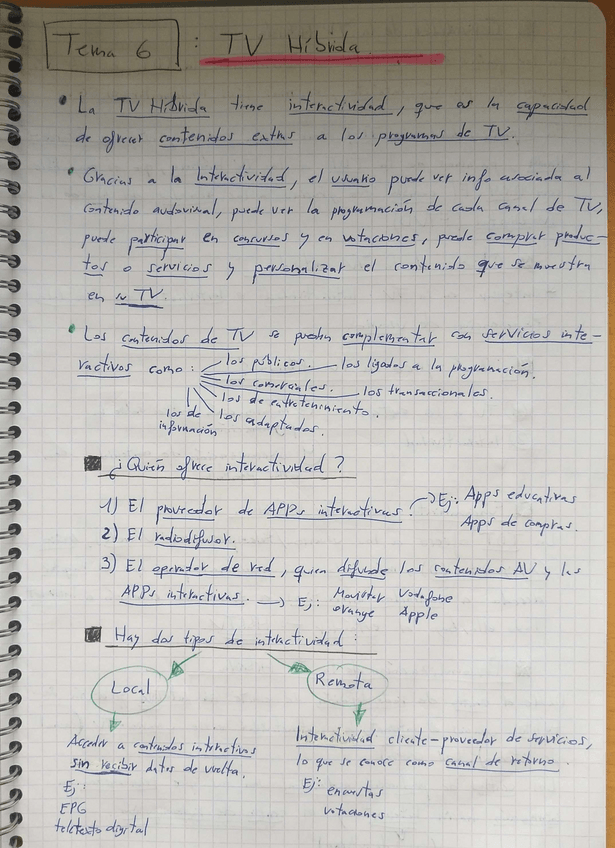 Tema 6 : TV Híbrida.
• La TV Híbrida tiene interactividad, que es la capacidad
de ofrecer contenidos extras a los programas de TV.
• Gracias a la Interactividad, el usuario puede ver info asociada al
contenido audiovisual, puede ver la programación de cada canal de TV,
puede participar en concursos y en votaciones, puede comprar produc-
tos o servicios y personalizar el contenido que se muestra
en su TV.
• Los contenidos de TV se pueden complementar con servicios inte-
ractivos como:
los públicos.
los ligados a la programación.
los comerciales.
los transaccionales.
los de entretenimiento.
los adaptados.
los de
información
¿Quién ofrece interactividad?
1) El proveedor de APPs interactivas. → Ej: Apps educativas
Apps de compras.
2) El radiodifusor.
3) El operador de red, quien difunde los contenidos AV y las
APPs interactivas. → Ej: Movistar Vodafone
orange Apple
Hay dos tipos de interactividad:
Local
Remota
Acceder a contenidos interactivos
sin recibir datos de vuelta.
Ej:
EPG
teletexto digital
Interactividad cliente-proveedor de servicios,
lo que se conoce como canal de retorno.
Ej: encuestas
votaciones